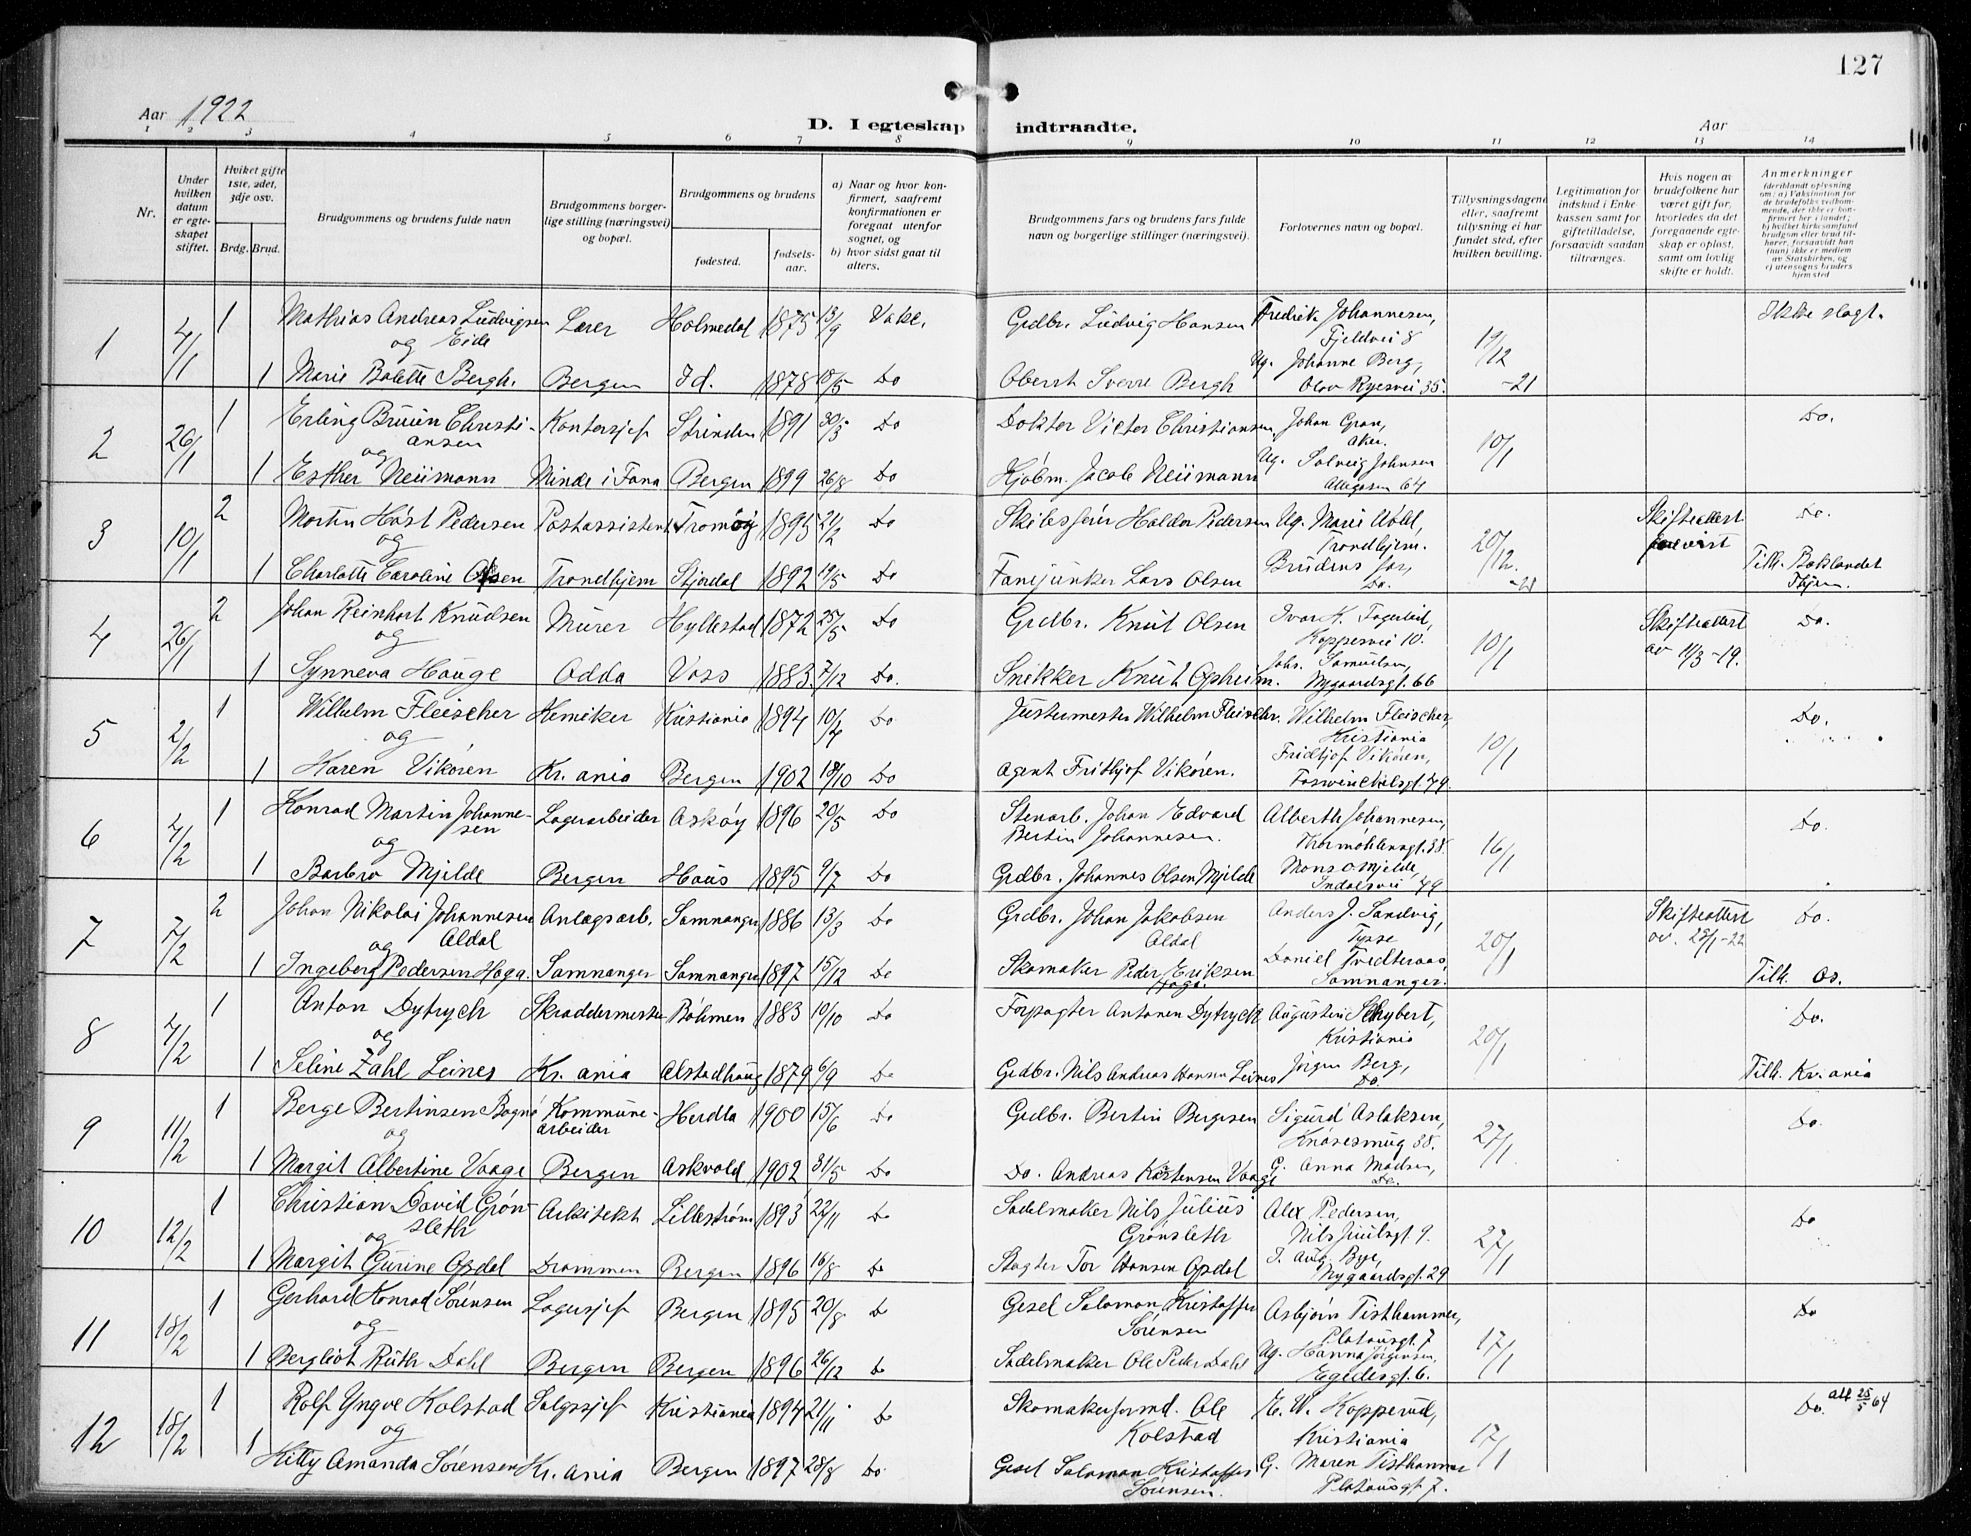 127
Aar 1922
D. I egteskap indtraadte.
Aar
1 2 3 4 5 6 7 8 9 10 11 12 13 14
Nr.
Under hvilken datum er egteskapet stiftet.
Hvilket gifte 1ste, 2det, 3dje osv.
Brdg. Brud.
Brudgommens og brudens fulde navn
Brudgommens borgerlige stilling (næringsvei) og bopæl.
Brudgommens og brudens
fødested.
fødselsaar.
a) Naar og hvor konfirmert, saafremt konfirmationen er foregaat utenfor sognet, og
b) hvor sidst gaat til alters.
Brudgommens fars og brudens fars fulde navn og borgerlige stillinger (næringsvei).
Forlovernes navn og bopæl.
Tillysningsdagene eller, saafremt tillysning ei har fundet sted, efter hvilken bevilling.
Legitimation for indskud i Enkekassen samt for giftetilladelse, forsaavidt saadan tiltrænges.
Hvis nogen av brudefolkene har været gift før, hvorledes da det foregaaende egteskap er opløst, samt om lovlig skifte er holdt.
Anmerkninger
(deriblandt oplysning om: a) Vaksination for de brudefolks vedkommende, der ikke er konfirmert her i landet; b) hvilket kirkesamfund brudgom eller brud tilhører, forsaavidt han (hun) ikke er medlem av Statskirken, og c) utensogns bruders hjemsted
1 4/1 1 Mathias Andreas Ludvigsen Eide Lærer Holmedal 1875 13/9 Vake. Grdbr. Ludvig Hansen Fredrik Johannesen, Fjeldvei 8 19/12 -21 Ikke slegt.
og
1 Marie Bolette Bergh. Bergen Id. 1878 10/5 Do Oberst Sverre Bergh Ug. Johanne Berg, Olav Ryesvei 35.
2 26/1 1 Erling Bruun Christiansen Kontorsjef Strinden 1891 30/5 Do Doktor Victor Christiansen Johan Gran, Aker. 10/1 Do.
og
1 Esther Neumann Minde i Fana Bergen 1899 26/8 Do Kjøbm. Jacob Neumann Ug. Solveig Johnsen Allegaten 64
3 10/1 2 Morten Høst Pedersen Postassistent Tromøy 1895 21/2 Do Skibsfører Haldor Pedersen Ug. Marie Abel, Trondhjem. 20/12. -21 Skifteattest Do.
og
1 Charlotte Caroline Olsen Trondhjem Stjørdal 1892 19/5 Do Fanejunker Lars Olsen Brudens Far, Do. Tilh. Baklandet Thjem.
4 26/1 2 Johan Reinhart Knudsen Murer Hyllestad 1872 25/5 Do Grdbr. Knut Olsen Ivar K. Fagerlid, Koppersvei 10. 10/1 Skifteattest av 11/3-19. Do.
og
1 Synneva Hauge Odda Voss 1883 7/12 Do. Snekker Knut Opheim. Johs. Samuelsen, Nygaardsgt. 66
5 2/2 1 Wilhelm Fleischer Kemiker Kristiania 1894 10/4 Do Justermester Wilhelm Fleischer. Wilhelm Fleischer, Kristiania 10/1 Do.
og
1 Karen Vikøren Kr.ania Bergen 1902 18/10 Do Agent Fridtjof Vikøren. Fridtjof Vikøren,
6 4/2 1 Konrad Martin Johannesen Lagerarbeider Askøy 1896 20/5 Do Stenarb. Johan Edvard Bertin Johannesen. Alberth Johannesen, Thormøhlensgt. 38. 16/1 Do.
og
1 Barbro Mjelde Bergen Haus 1895 9/7 Do Grdbr. Johannes Olsen Mjelde Mons O Mjelde, Indalsvei 49
7 7/2 2 Johan Nikolai Johannesen Aldal Anlægsarb. Samnanger 1886 13/3 Do Grdbr. Johan Jakobsen Aldal Anders J. Sandvig, Tysse 20/1 Skifteattest av. 28/1-22 Do.
og
1 Ingeborg Pedersen Haga. Samnanger Samnanger 1897 15/12 Do Skomaker Peder Eriksen Haga. Daniel Tvedteraas, Samnanger. Tilh. Os.
8 4/2 1 Anton Dytrych Skræddermester Bøhmen 1883 10/10 Do Forpagter Antonen Dytrych Augustin Schybert, Kristiania 20/1 Do.
og
1 Seline Zahl Leines Kr. ania Alstadhaug 1879 6/9 Do Grdbr. Nils Andreas Hansen Leines Jørgen Berg, Do. Tilh. Kr. ania
9 11/2 1 Berge Bertinsen Bognø Kommunearbeider Herdla 1900 15/6 Do Grdbr. Bertin Bergesen Sigurd Aslaksen, Knøsesmug 38. 27/1 Do.
og
1 Margit Albertine Vaage Bergen Askvold 1902 31/5 Do Do. Andreas Karstensen Vaage G. Anna Madsen, Do.
10 12/2 1 Christian David Grønsleth Arkitekt Lillestrøm 1893 22/11 Do Sadelmaker Nils Julius Grønsleth Alex Pedersen, Nils Juulsgt 9. 27/1 Do
og
1 Margit Gurine Opdal Drammen Bergen 1896 16/8 Do Slagter Tor Hansen Opdal J. Aug. Bye, Nygaardsgt. 29
11 18/2 1 Gerhard Konrad Sørensen Lagersjef Bergen 1895 20/8 Do Gesel Salomon Kristoffer Sørensen Asbjørn Tisthammer, Platousgt. 7 17/1 Do
og
1 Bergliot Ruth Dahl Bergen Bergen 1896 26/12 Do Sadelmaker Ole Peder Dahl Ug. Hanna Jørgensen, Egedesgt. 6.
12 18/2 1 Rolf Yngve Kolstad Salgssjef Kristiania 1894 21/11 Do Skomakerformd. Ole Kolstad E. W. Kopperud, Kristiania 17/1 Do. att 25/5 64
og
1 Kitty Amanda Sørensen Kr. ania Bergen 1897 28/8 Do Gesel Salomon Kristoffer Sørensen. G. Maren Tisthammer Platousgt 7.